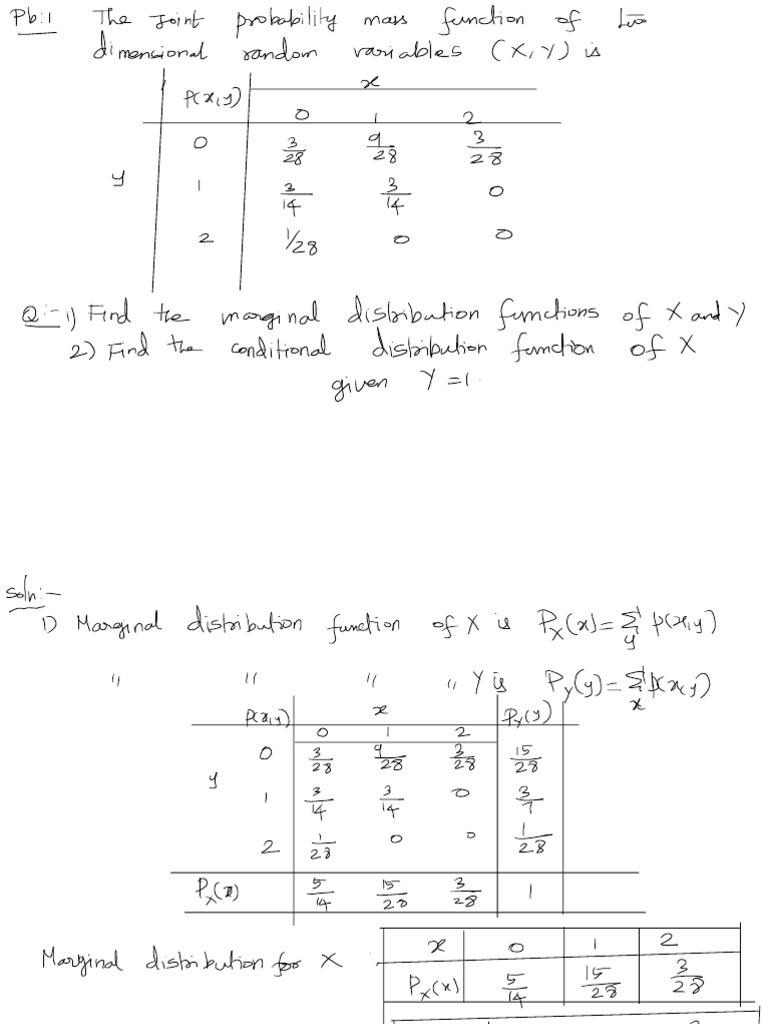 Pb:1 The Joint probability mass function of two
dimensional random variables (X,Y) is
P(x,y) x
0 1 2
0 3/28 9/28 3/28
y 1 3/14 3/14 0
2 1/28 0 0
Q:- 1) Find the marginal distribution functions of X and Y
2) Find the conditional distribution function of X
given Y=1.
Soln:-
1) Marginal distribution function of X is P_X(x) = Σ_y p(x,y)
" " " " Y is P_Y(y) = Σ_x p(x,y)
P(x,y) x P_Y(y)
0 1 2
0 3/28 9/28 3/28 15/28
y 1 3/14 3/14 0 3/7
2 1/28 0 0 1/28
P_X(x) 5/14 15/28 3/28 1
Marginal distribution for X
x 0 1 2
P_X(x) 5/14 15/28 3/28